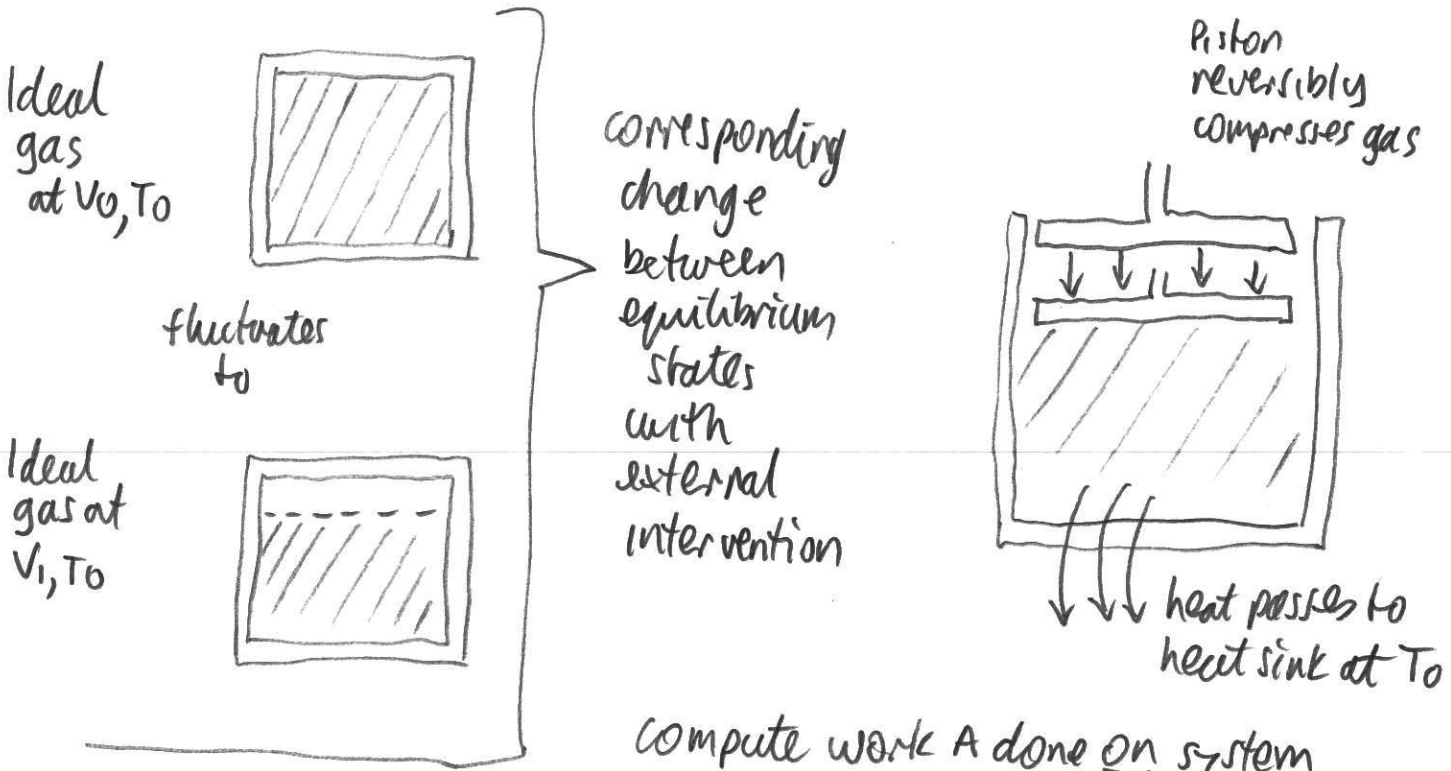 Ideal
gas
at V0, T0
fluctuates
to
Ideal
gas at
V1, T0
corresponding
change
between
equilibrium
states
with
external
intervention
Piston
reversibly
compresses gas
heat passes to
heat sink at T0
compute work A done on system